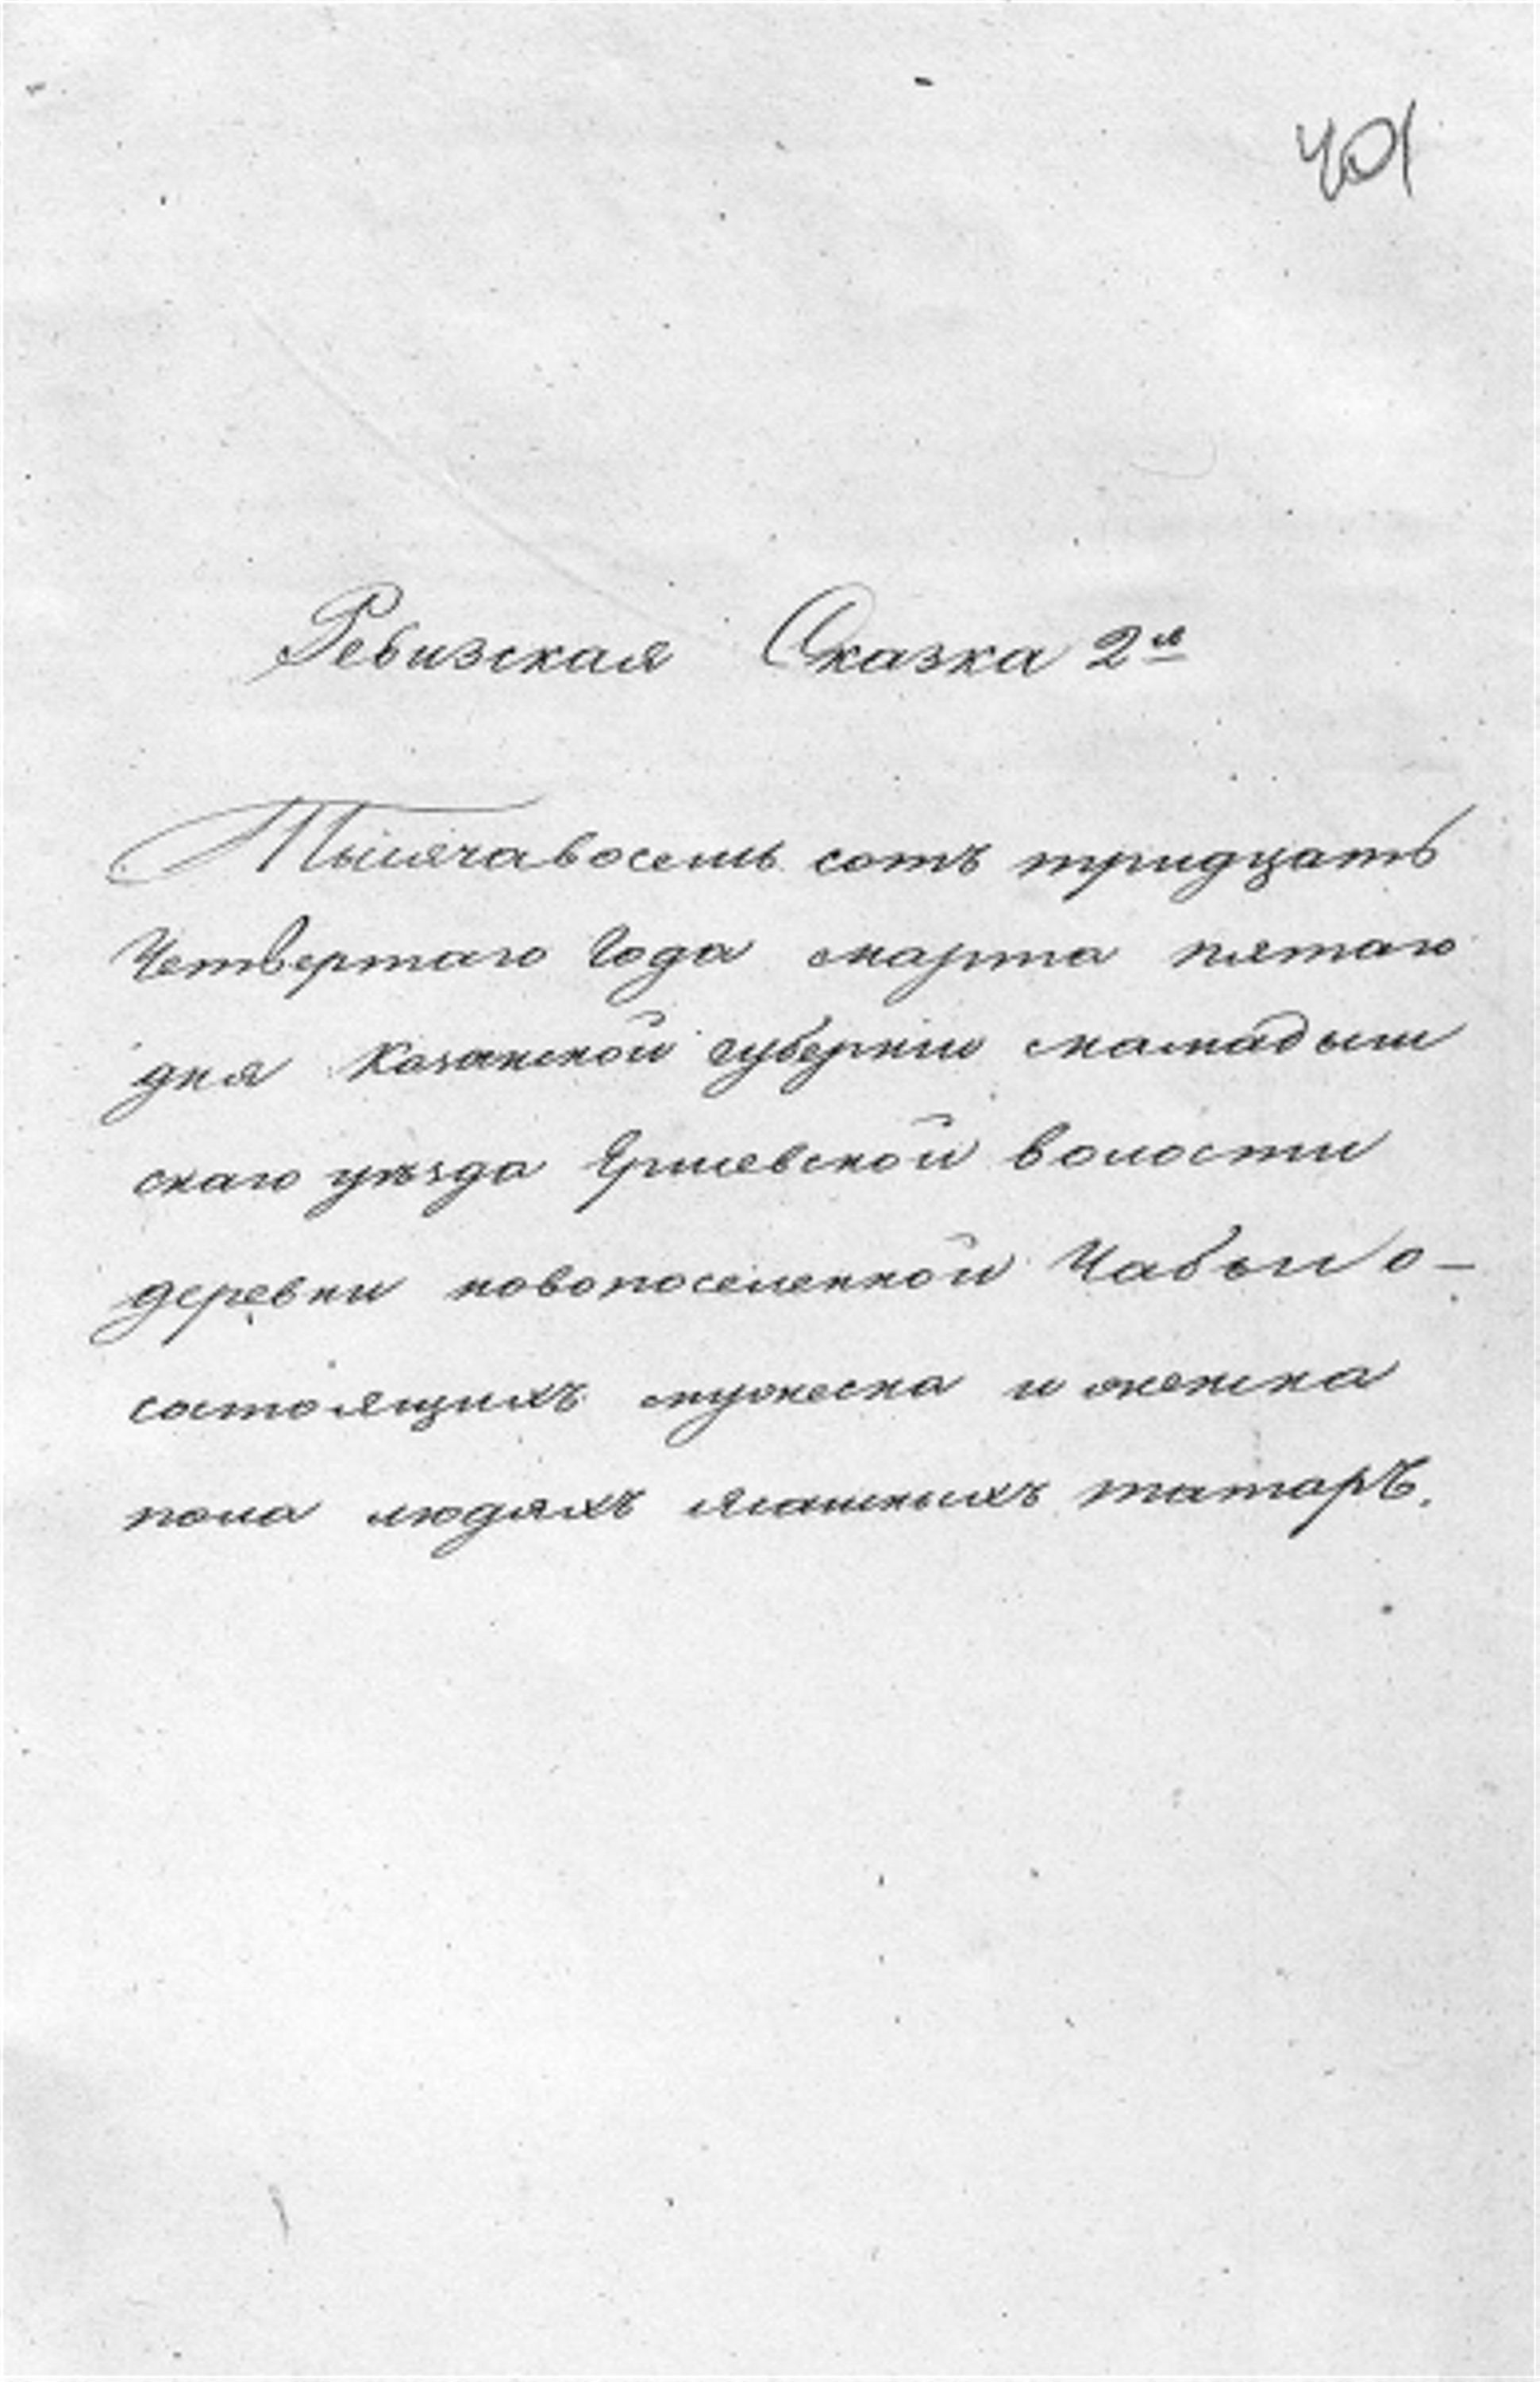 401
Ревизская Сказка 2я
Тысяча восемь сотъ тридцать
Четвертаго Года марта пятаго
дня Казанской губернiи мамадыш
скаго уѣзда Ершевской волости
деревни новопоселенной Чабьи о-
состоящихъ мужеска и женска
пола людяхъ ясашныхъ татаръ.